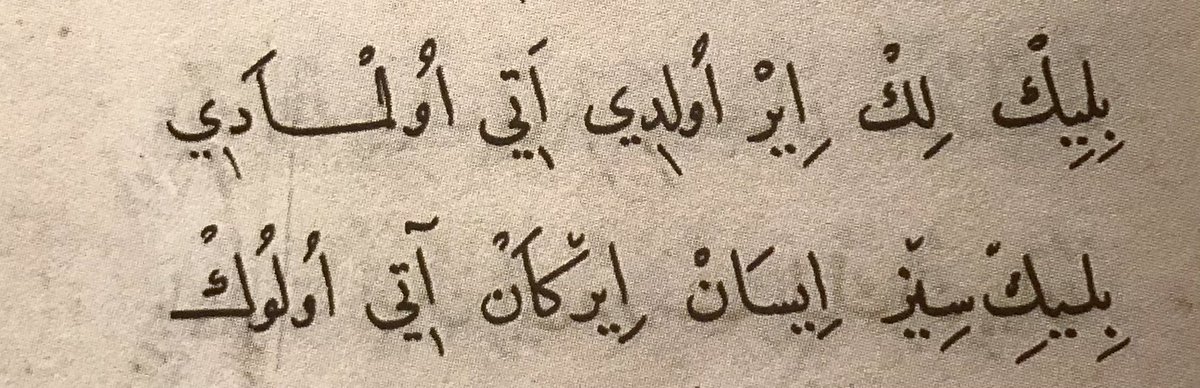 بِلِيكْ لِكْ اِيرْ اُولدِي اَتِي اُولْمَادِي
بِلِيكِْسِيزْ اِيسَانْ اِيرْكَانْ آتِي اُولُوكْ